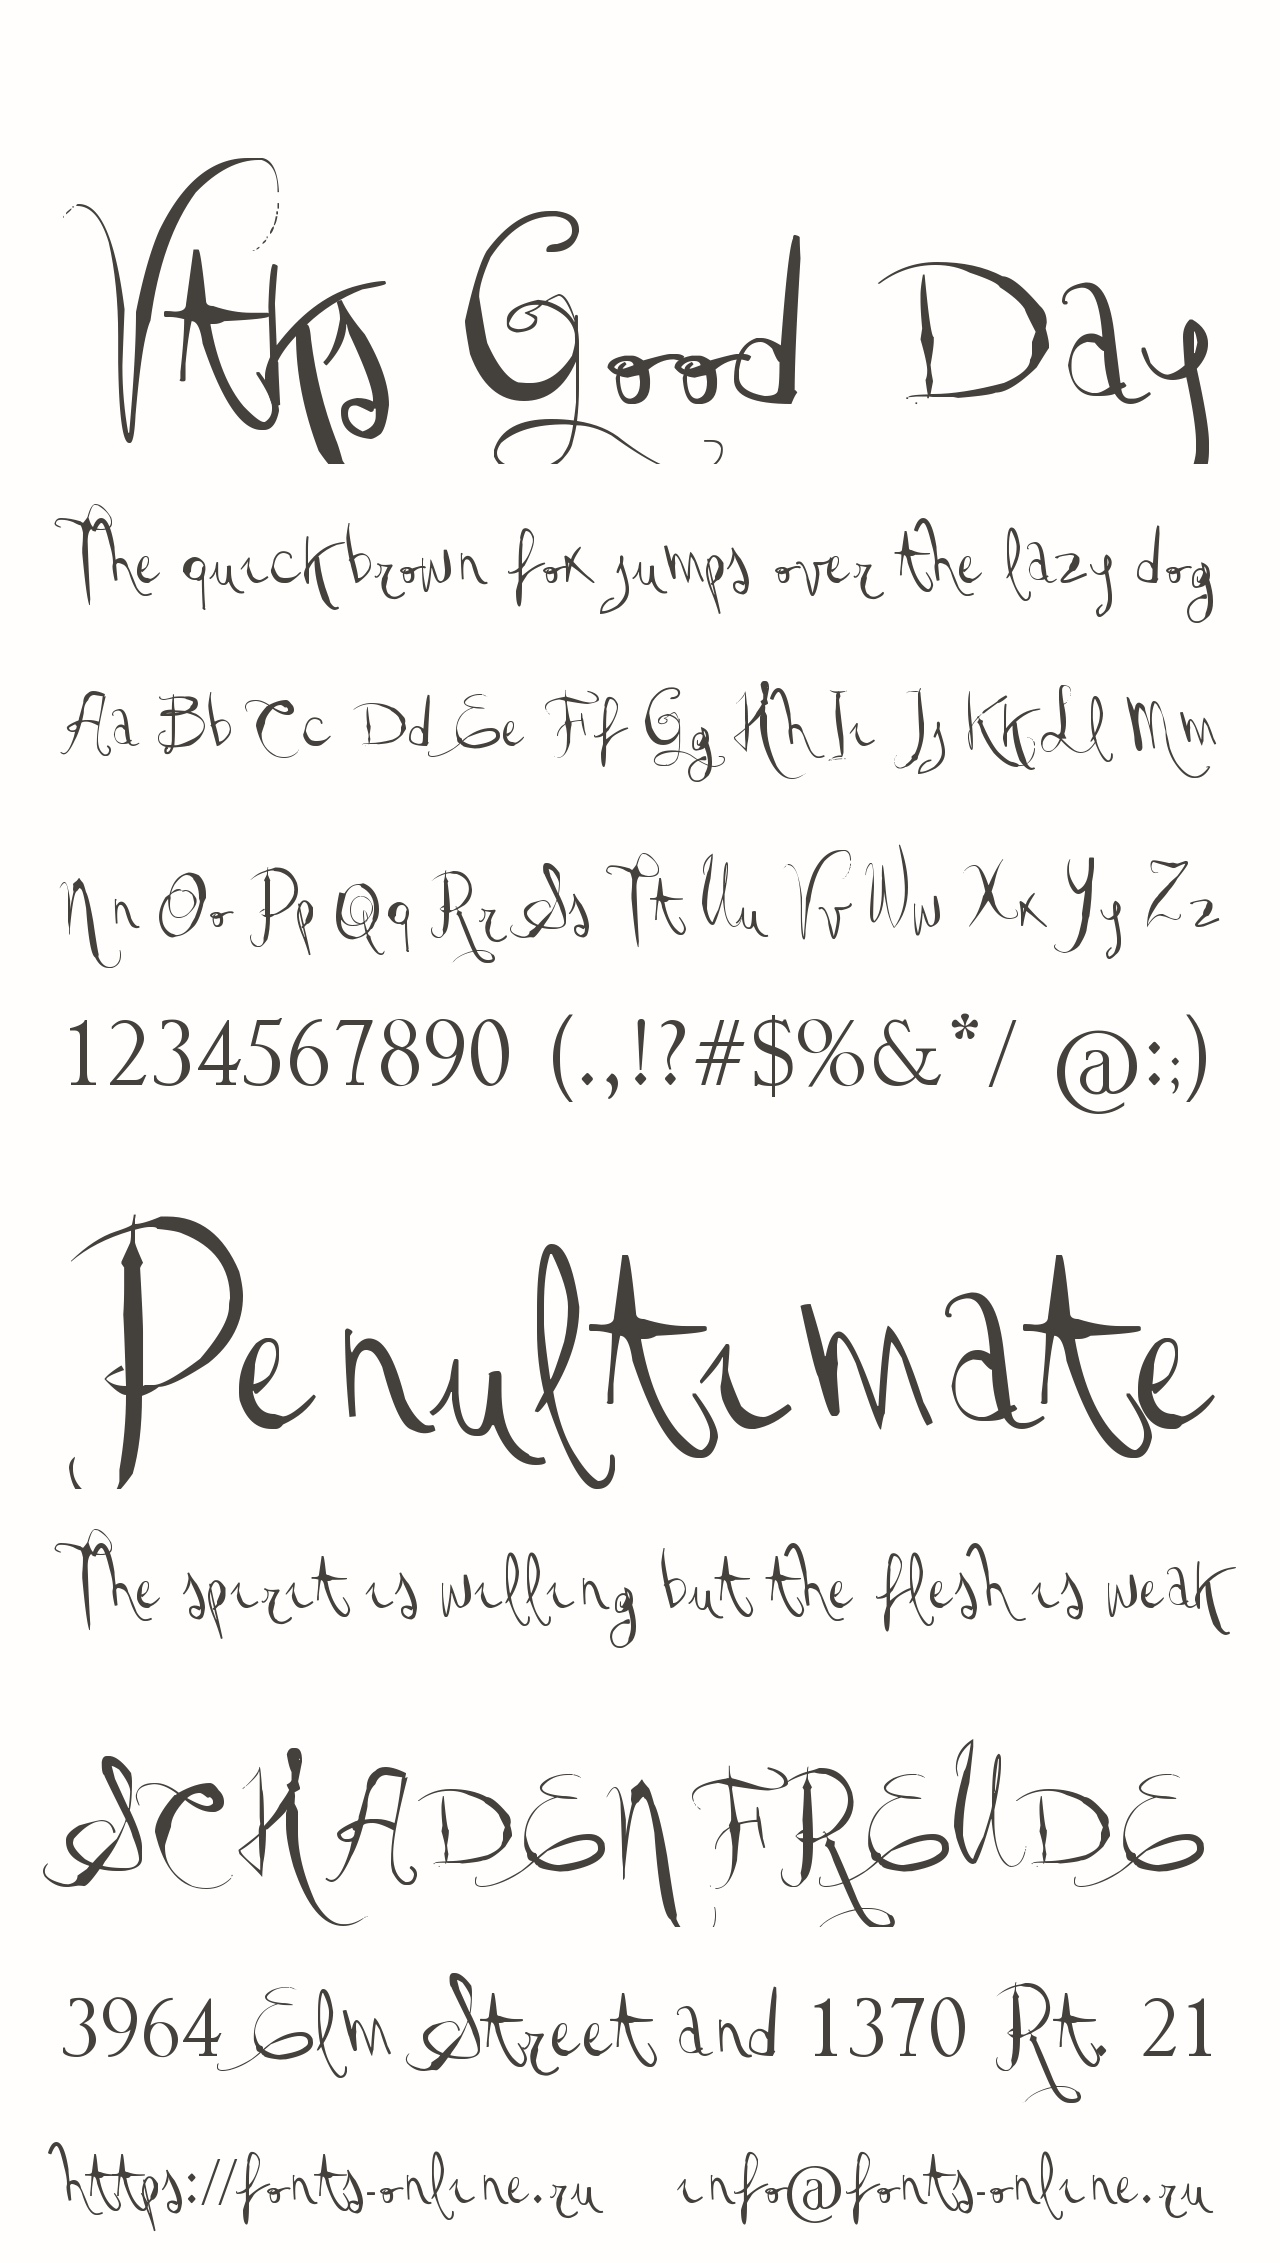 Vtks Good Day
The quick brown fox jumps over the lazy dog
Aa Bb Cc Dd Ee Ff Gg Hh Ii Jj Kk Ll Mm
Nn Oo Pp Qq Rr Ss Tt Uu Vv Ww Xx Yy Zz
1234567890 (.,!?#$%&*/ @:;)
Penultimate
The spirit is willing but the flesh is weak
SCHADENFREUDE
3964 Elm Street and 1370 Rt. 21
https://fonts-online.ru info@fonts-online.ru